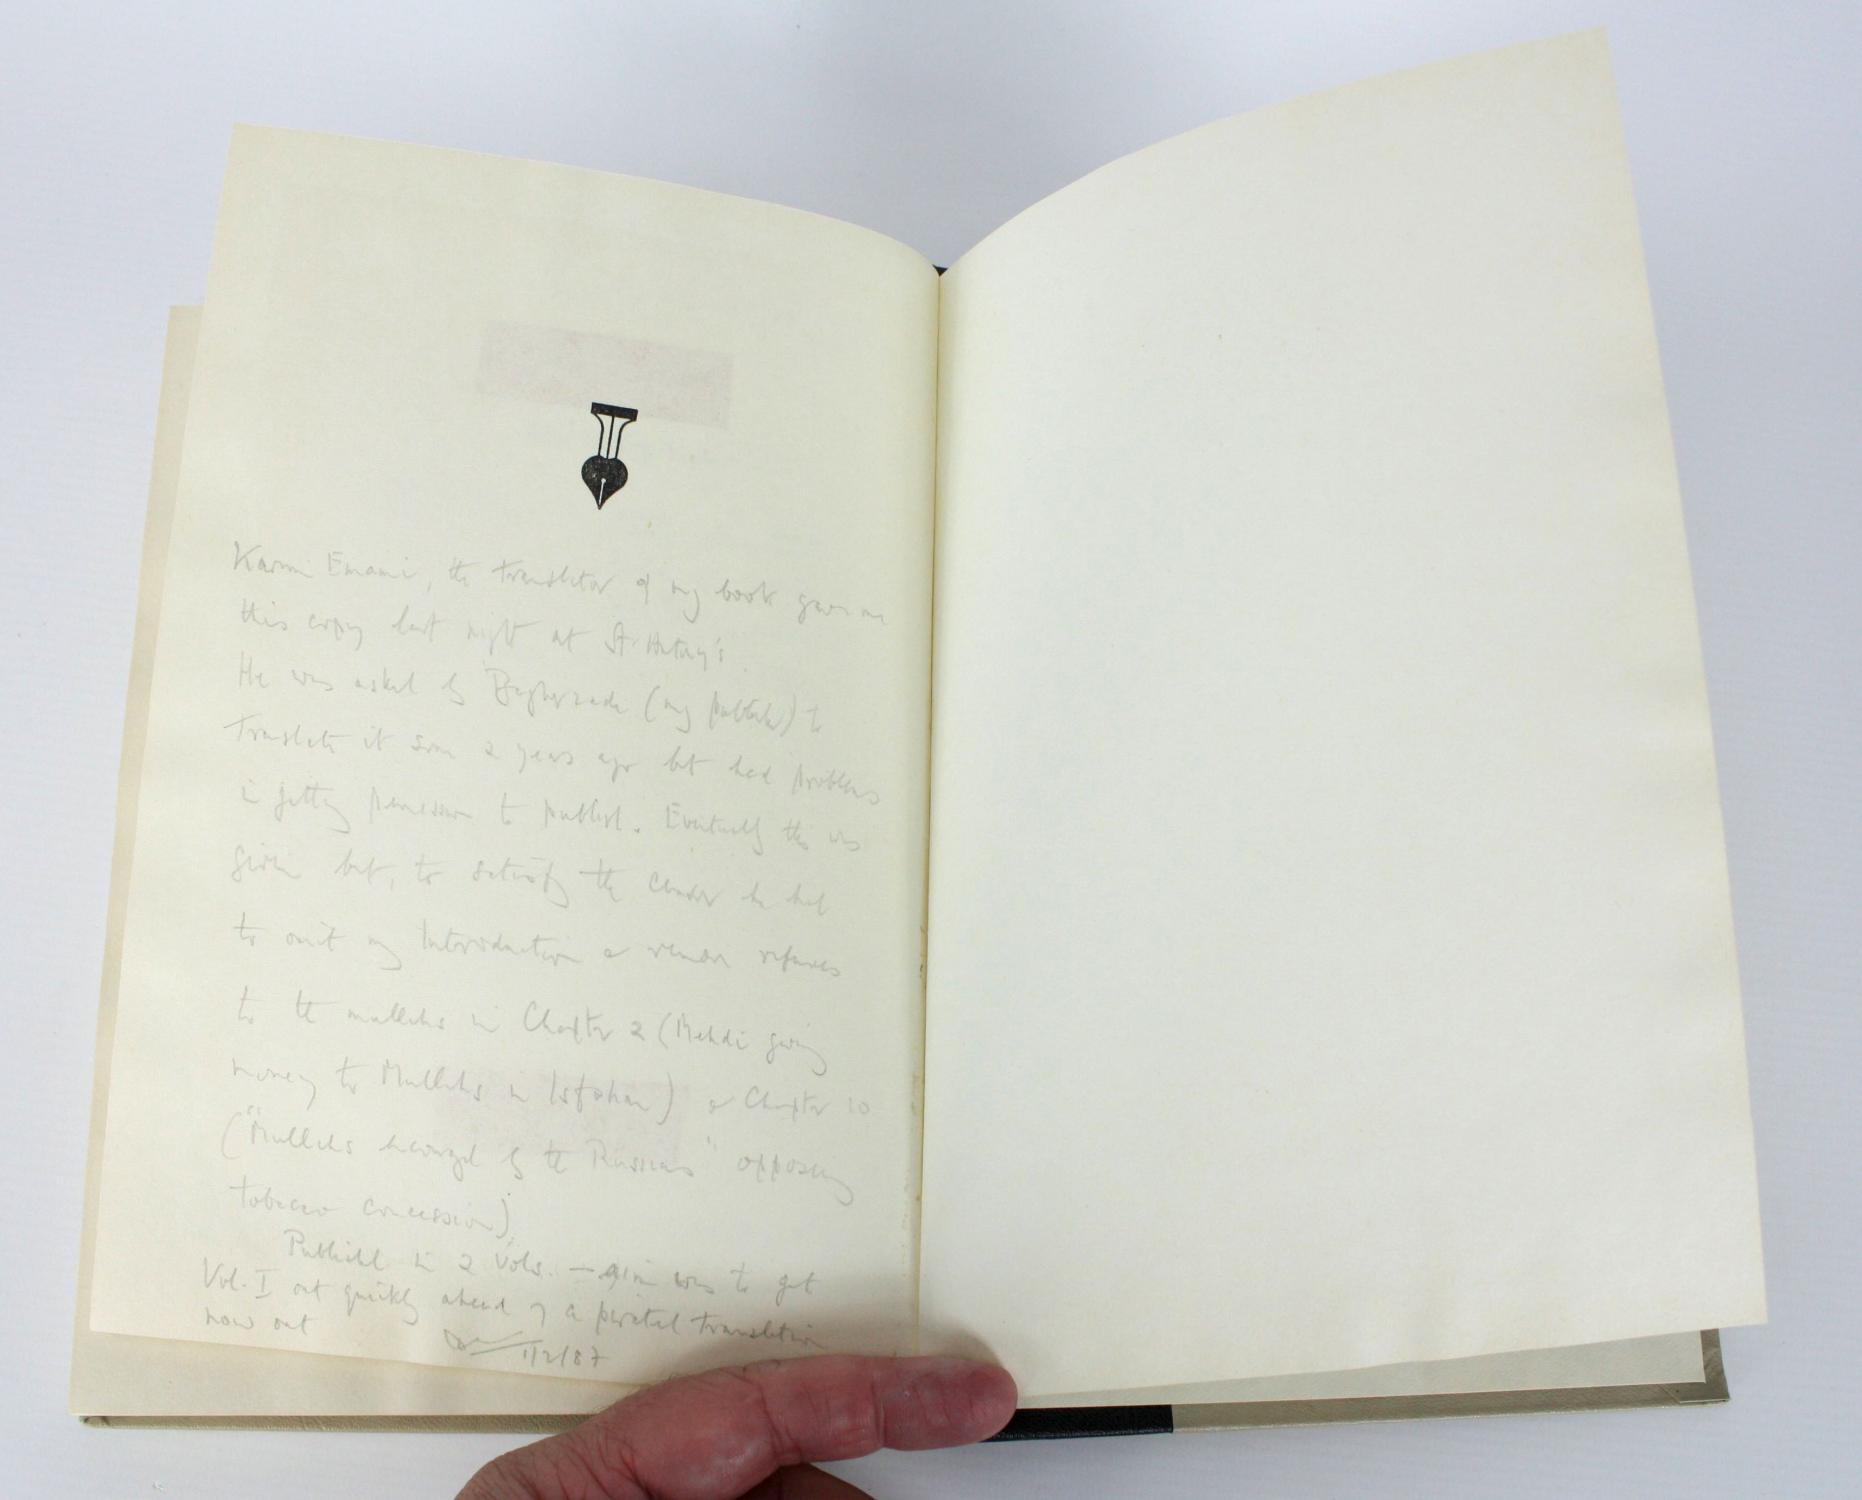 Karim Emami, the translator of my book gave me
this copy last night at St. Antony's.
He was asked by Bagherzade (my publisher) to
translate it some 2 years ago but had problems
in getting permission to publish. Eventually this was
given but, to satisfy the censor he had
to omit my Introduction & remove references
to the mullahs in Chapter 2 (Mehdi giving
money to Mullahs in Isfahan) & Chapter 10
("Mullahs encouraged by the Russians" opposing
tobacco concession)
Published in 2 Vols. — aim was to get
Vol. I out quickly ahead of a pirated translation
now out
1/2/87